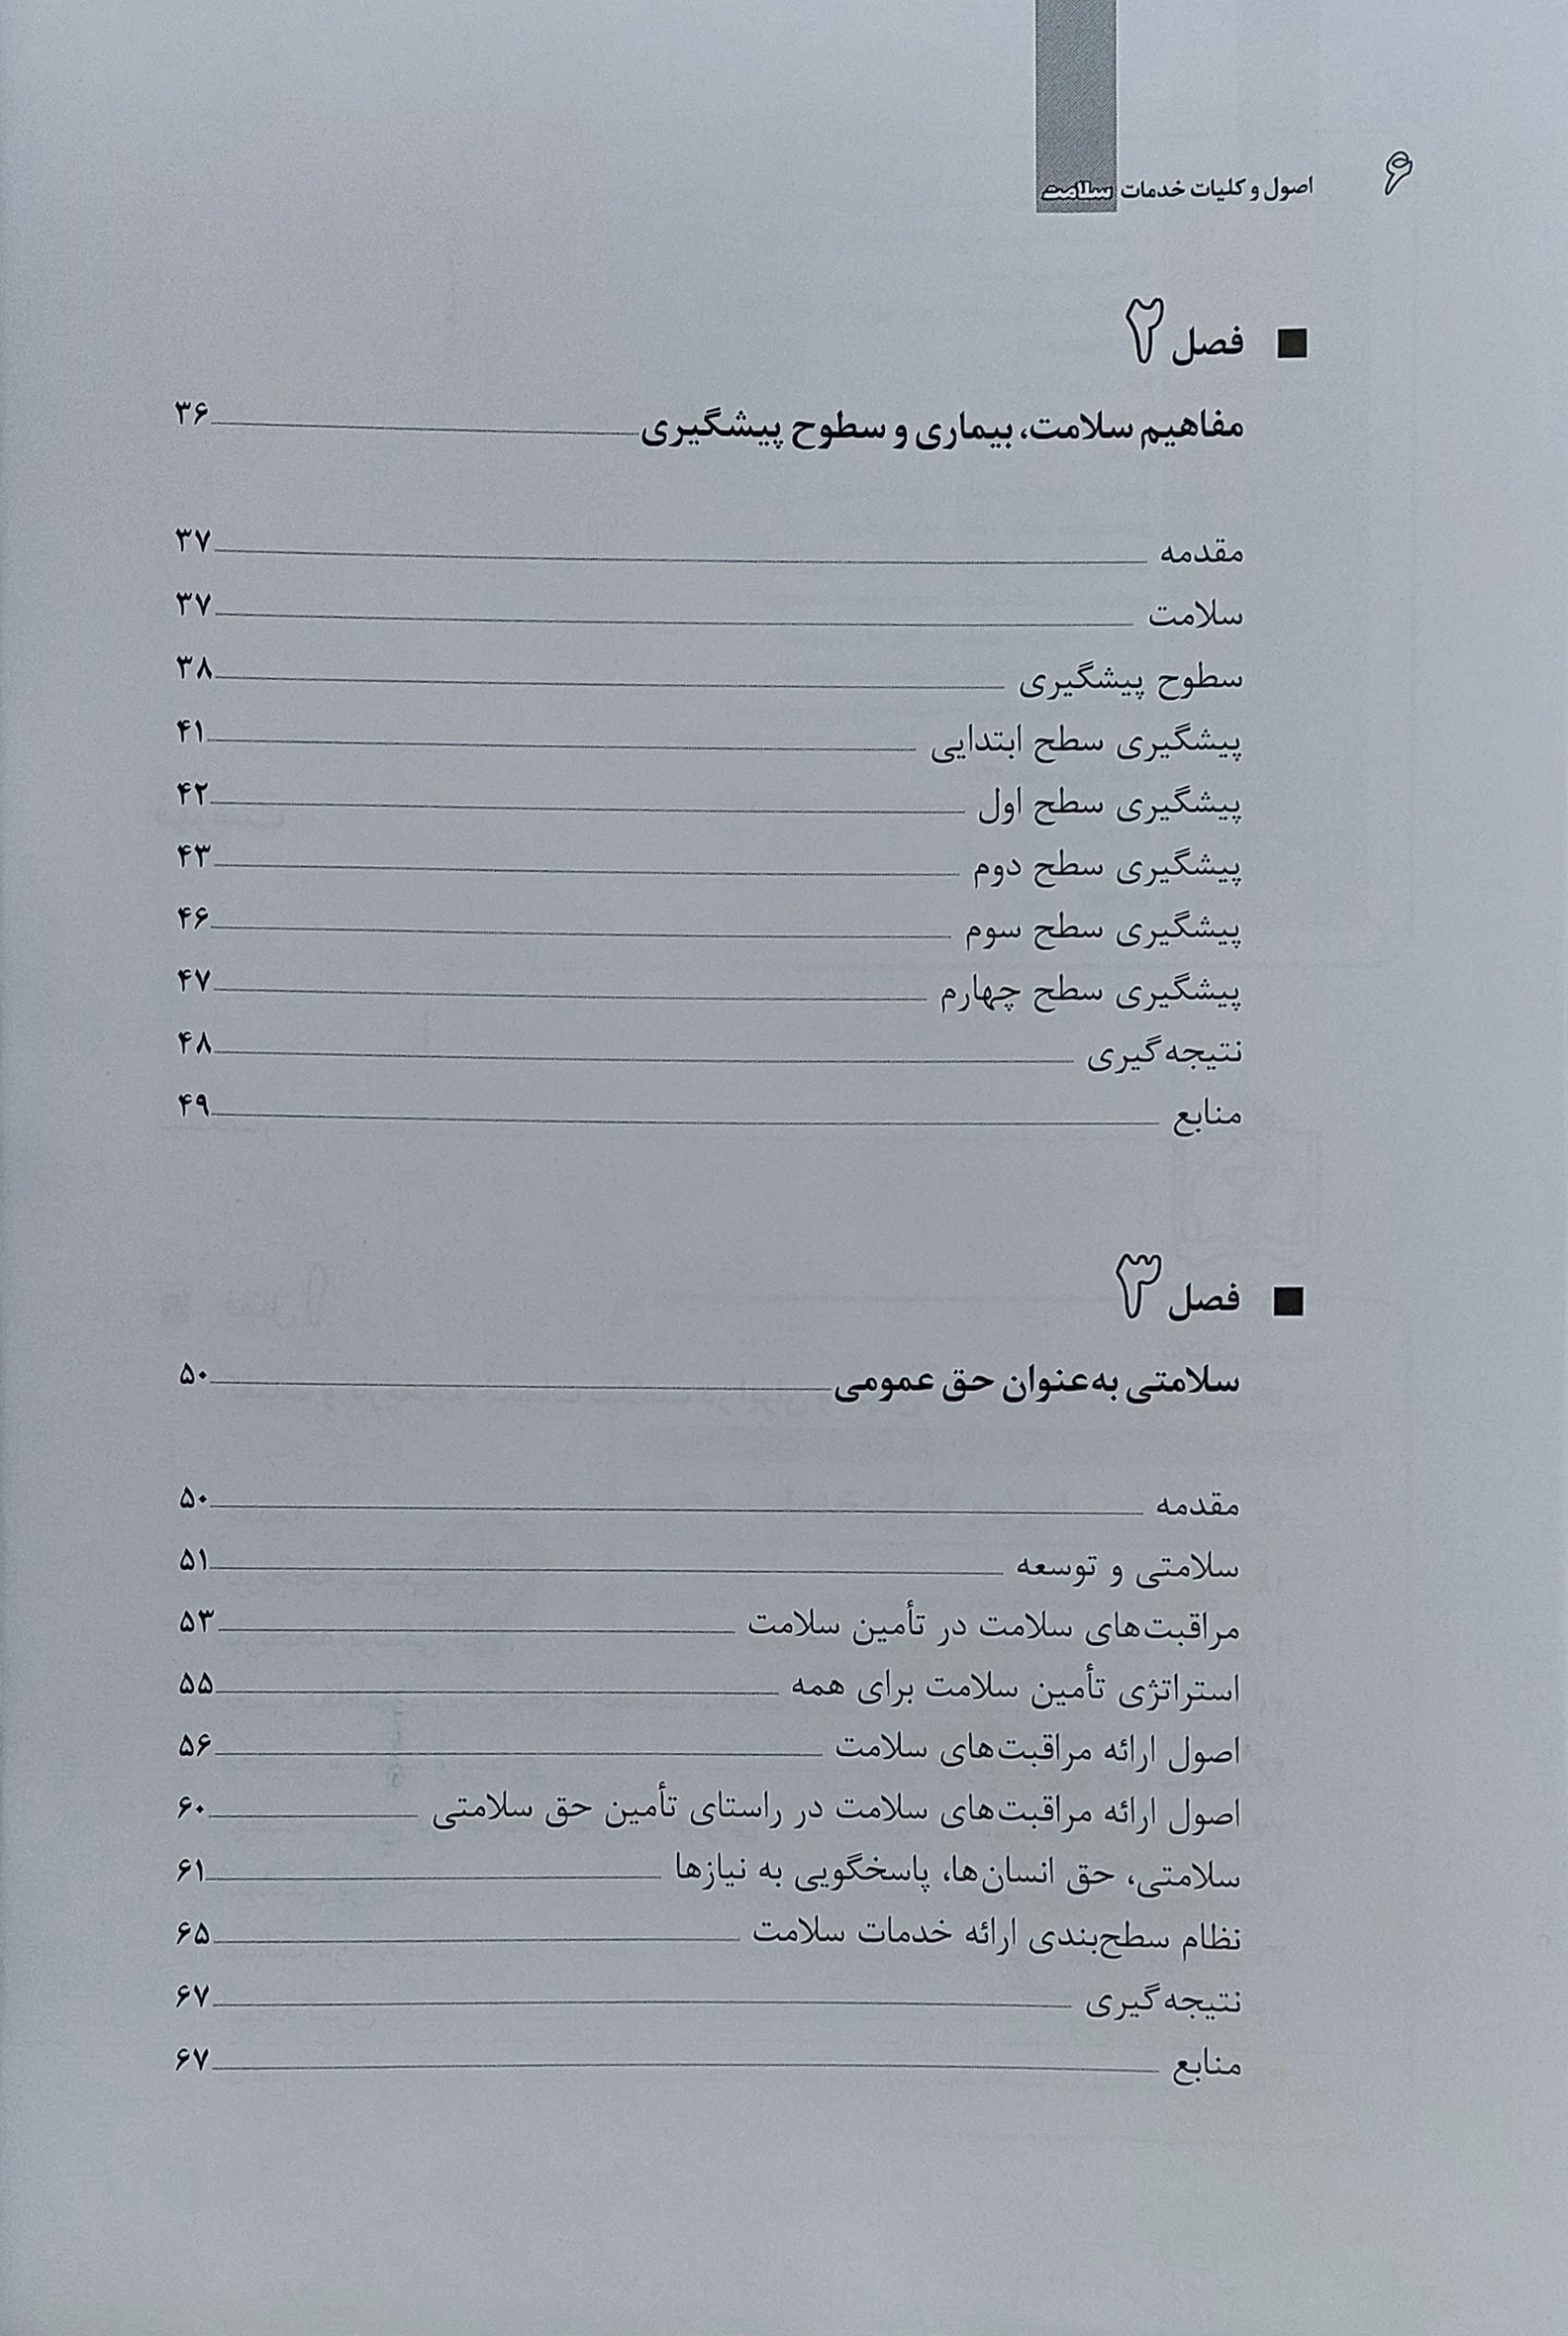 ۶ اصول و کلیات خدمات سلامت
فصل ۲
مفاهیم سلامت، بیماری و سطوح پیشگیری ۳۶
مقدمه ۳۷
سلامت ۳۷
سطوح پیشگیری ۳۸
پیشگیری سطح ابتدایی ۴۱
پیشگیری سطح اول ۴۲
پیشگیری سطح دوم ۴۳
پیشگیری سطح سوم ۴۶
پیشگیری سطح چهارم ۴۷
نتیجه‌گیری ۴۸
منابع ۴۹
فصل ۳
سلامتی به‌عنوان حق عمومی ۵۰
مقدمه ۵۰
سلامتی و توسعه ۵۱
مراقبت‌های سلامت در تأمین سلامت ۵۳
استراتژی تأمین سلامت برای همه ۵۵
اصول ارائه مراقبت‌های سلامت ۵۶
اصول ارائه مراقبت‌های سلامت در راستای تأمین حق سلامتی ۶۰
سلامتی، حق انسان‌ها، پاسخگویی به نیازها ۶۱
نظام سطح‌بندی ارائه خدمات سلامت ۶۵
نتیجه‌گیری ۶۷
منابع ۶۷